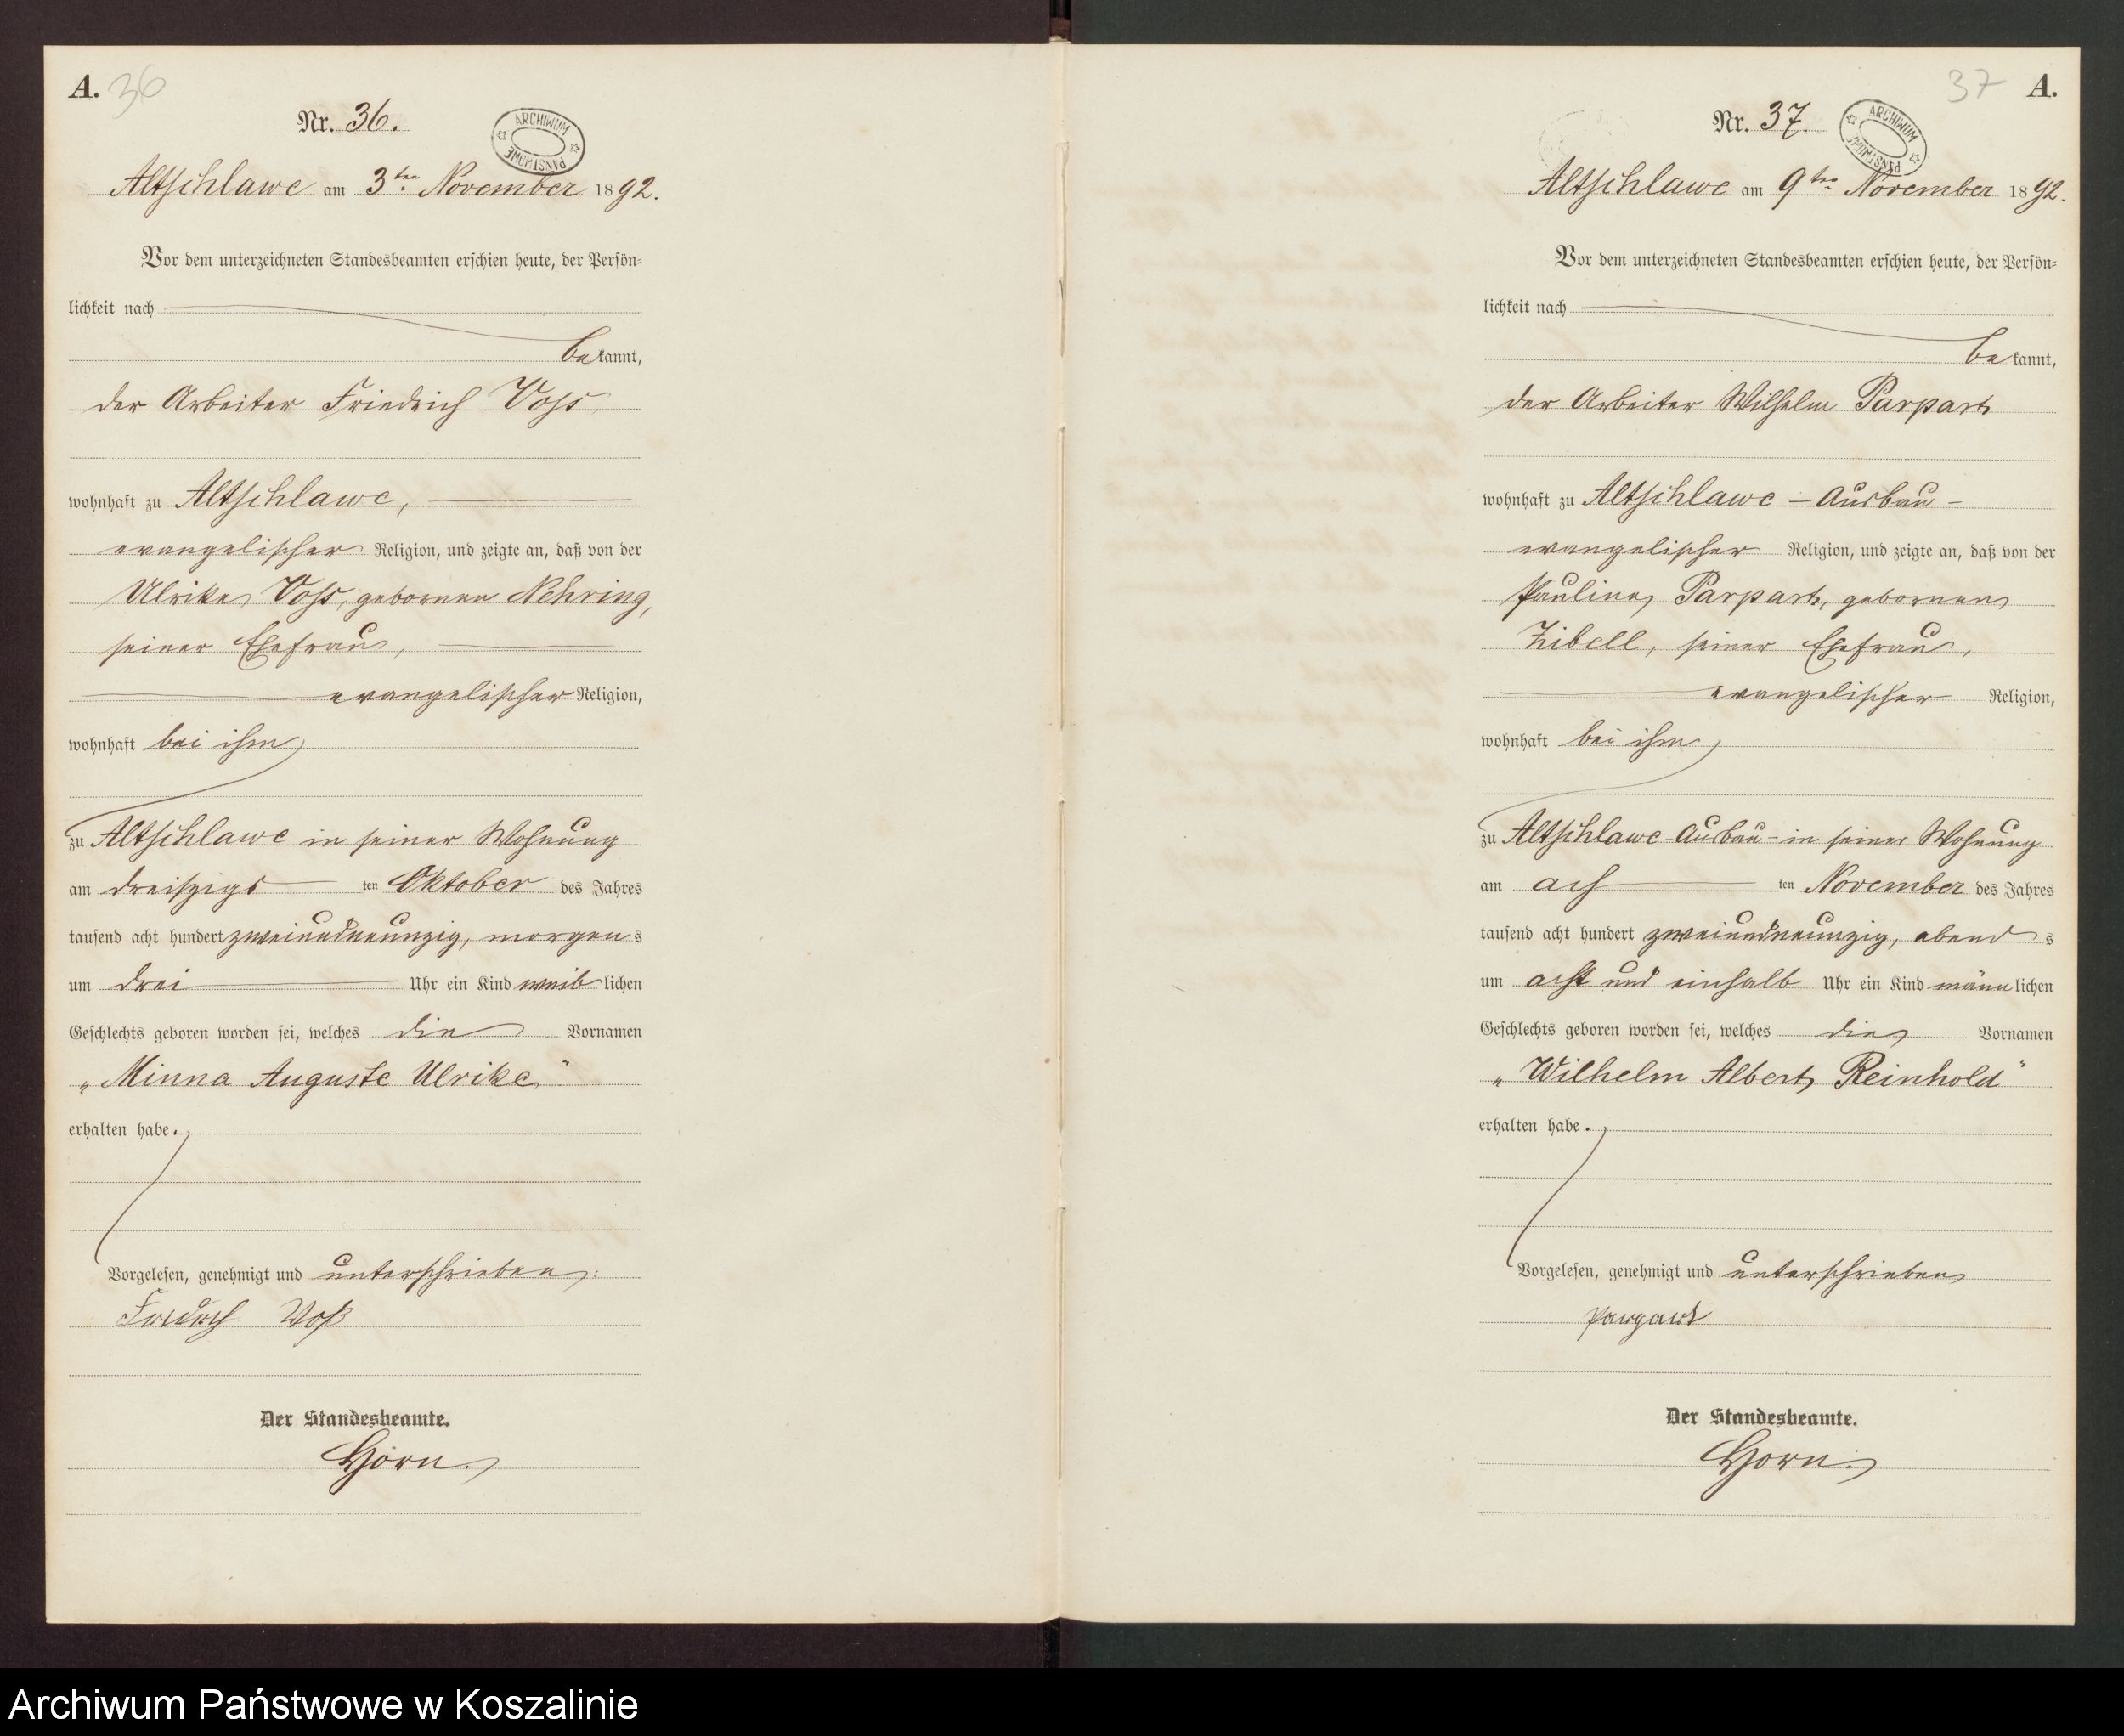 A. 36
Nr. 36.
ARCHIWUM PAŃSTWOWE
Altschlawe am 3ten November 1892.
Vor dem unterzeichneten Standesbeamten erschien heute, der Persön-
lichkeit nach
bekannt,
der Arbeiter Friedrich Voss
wohnhaft zu Altschlawe,
evangelischer Religion, und zeigte an, daß von der
Ulrike Voss, gebornen Nehring,
seiner Ehefrau,
evangelischer Religion,
wohnhaft bei ihm
zu Altschlawe in seiner Wohnung
am dreiszigsten Oktober des Jahres
tausend acht hundert zweiundneunzig, morgens
um drei Uhr ein Kind weiblichen
Geschlechts geboren worden sei, welches die Vornamen
„Minna Auguste Ulrike"
erhalten habe.
Vorgelesen, genehmigt und unterschrieben:
Friedrich Voß
Der Standesbeamte.
Horn.
37 A.
Nr. 37.
ARCHIWUM PAŃSTWOWE
Altschlawe am 9ten November 1892.
Vor dem unterzeichneten Standesbeamten erschien heute, der Persön-
lichkeit nach
bekannt,
der Arbeiter Wilhelm Parpart
wohnhaft zu Altschlawe – Ausbau –
evangelischer Religion, und zeigte an, daß von der
Pauline Parpart, gebornen
Zibell, seiner Ehefrau,
evangelischer Religion,
wohnhaft bei ihm
zu Altschlawe – Ausbau – in seiner Wohnung
am achten November des Jahres
tausend acht hundert zweiundneunzig, abends
um acht und einhalb Uhr ein Kind männlichen
Geschlechts geboren worden sei, welches die Vornamen
„Wilhelm Albert Reinhold"
erhalten habe.
Vorgelesen, genehmigt und unterschrieben
Parpart
Der Standesbeamte.
Horn.
Archiwum Państwowe w Koszalinie